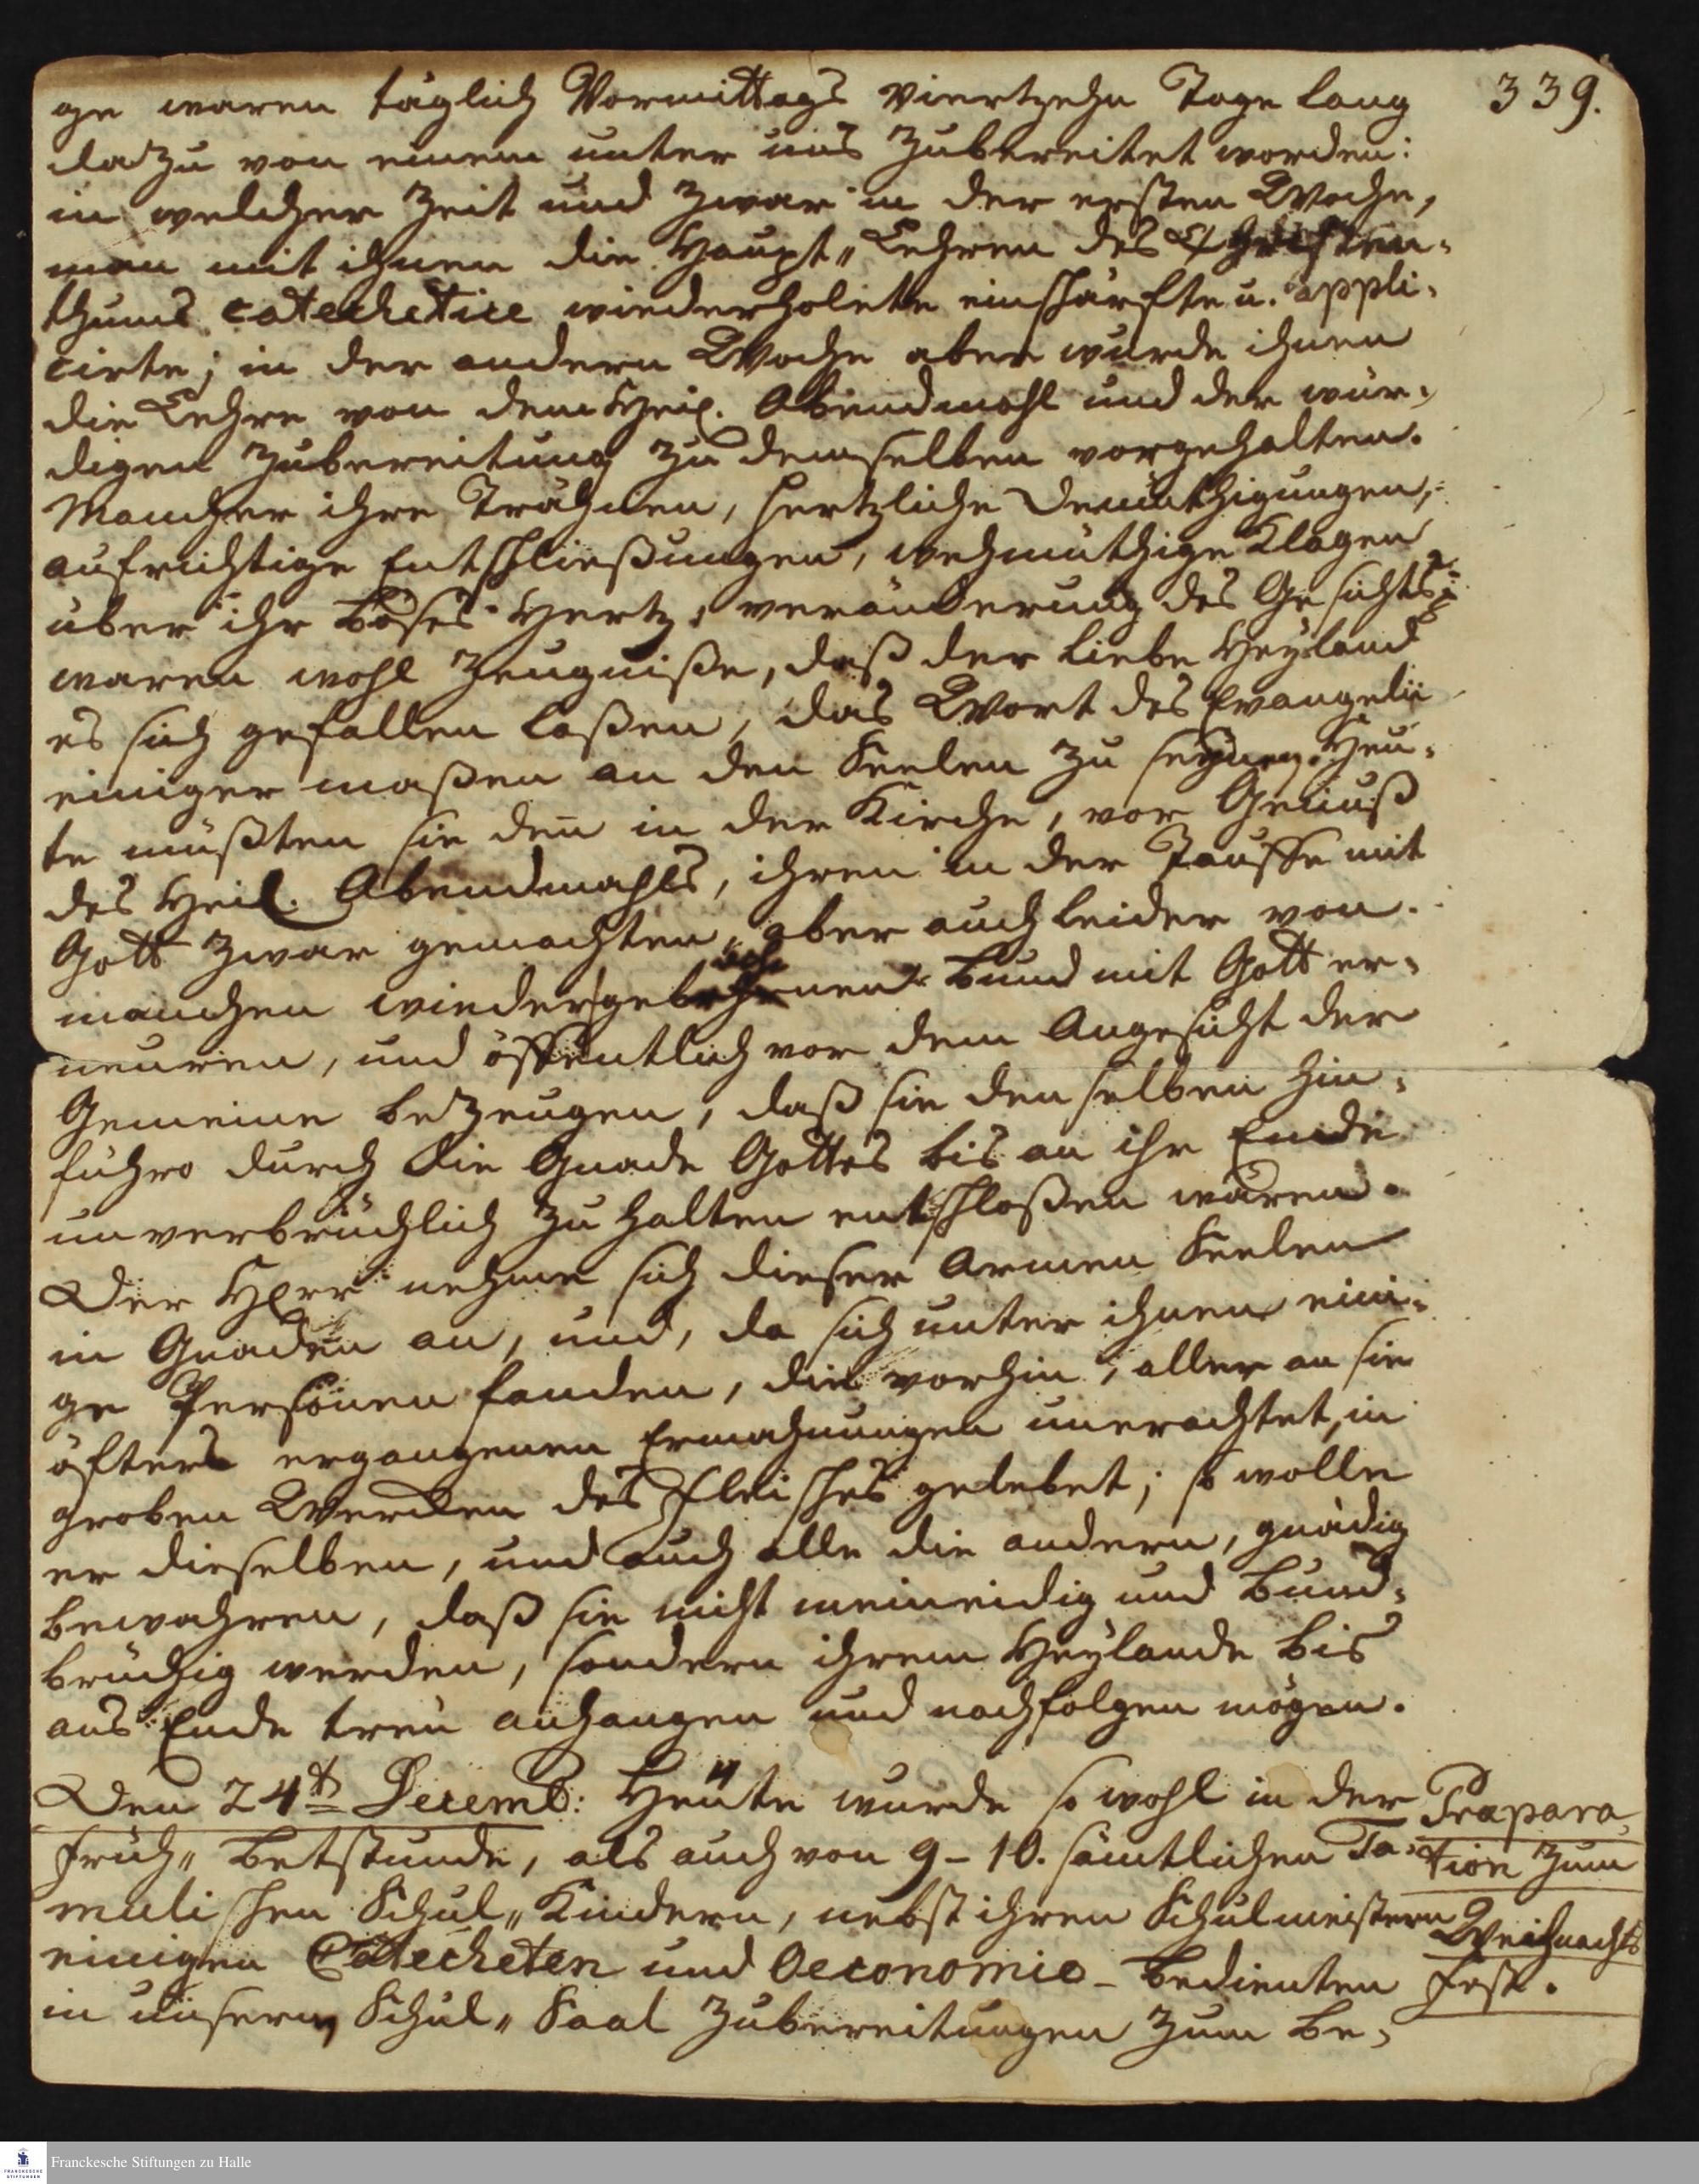 339.
ge waren täglich Vormittags viertzehn Tage lang
dazu von einem unter uns zubereitet worden:
in welcher Zeit und zwar in der ersten Woche,
man mit ihnen die Haupt„Lehren des Christen-
thums catechetice wiederholete einschärfte u. appli-
cirte; in der andern Woche aber wurde ihnen
die Lehre von dem Heil. Abendmahl und der wür-
digen Zubereitung zu demselben vorgehalten.
Mancher ihre Trähnen, hertzliche Demüthigungen,
aufrichtige Entschließungen, wehmüthige Klagen
über ihr böses Hertz, veränderung des Gesichts
waren wohl Zeugniße, daß der liebe Heyland
es sich gefallen laßen, das Wort des Evangelii
einiger maßen an den Seelen zu segnen. Heu-
te müßten sie deñ in der Kirche, vor Genuß
des Heil. Abendmahls, ihren in der Tauffe mit
Gott zwar gemachten, aber auch leider von
manchen wieder gebrochenen Bund mit Gott er-
neuren, und öffentlich vor dem Angesicht der
Gemeine bezeugen, daß sie denselben hin-
führo durch die Gnade Gottes bis an ihr Ende
unverbrüchlich zu halten entschloßen wären.
Der HErr nehme sich dieser Armen Seelen
in Gnaden an, und, da sich unter ihnen eini-
ge Persönen fanden, die vorhin, aller an sie
öfters ergangenen Ermahnungen unerachtet, in
groben Wercken des Fleisches gelebet; so wolle
er dieselben, und auch alle die andern, gnädig
bewahren, daß sie nicht meineidig und Bund-
brüchig werden, sondern ihrem Heylande bis
ans Ende treu anhangen und nachfolgen mögen.
Den 24t Decemb: Heute wurde so wohl in der
Früh„Betstunde, als auch von 9-10. sämtlichen Ta-
mulischen Schul„Kindern, nebst ihren Schulmeistern
einigen Catecheten und Oeconomie-Bedienten
in unserm Schul„Saal Zubereitungen zum Be-
Præpara-
tion zum
Weihnachts
Fest.
Franckesche Stiftungen zu Halle